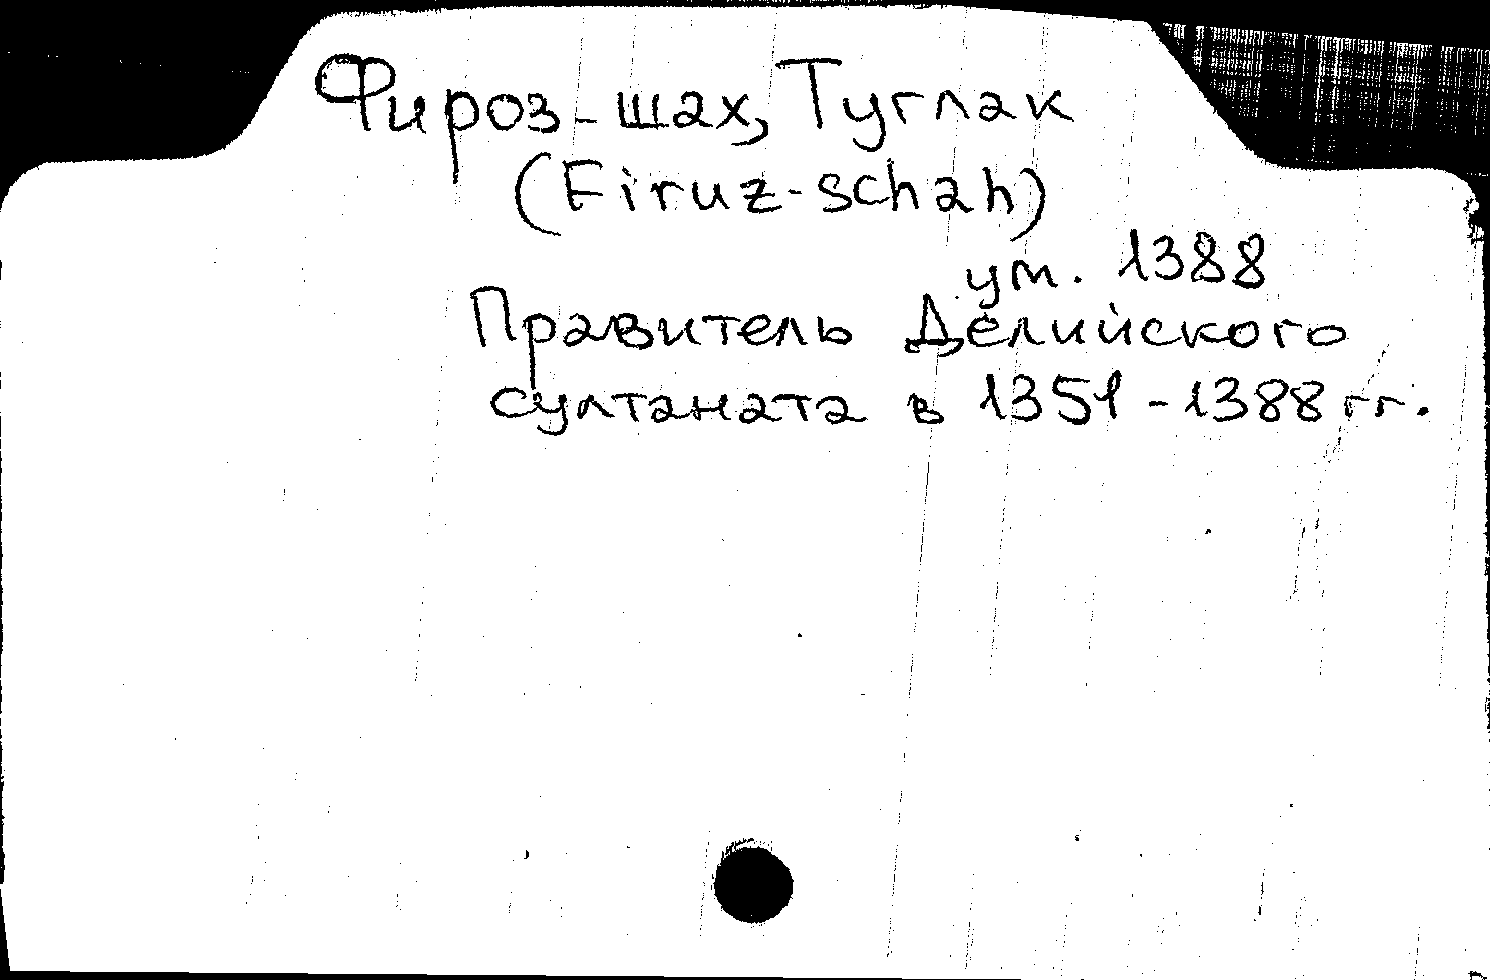 Фироз-шах, Туглак
(Firuz-schah)
ум. 1388
Правитель Делийского
султаната в 1351-1388 гг.